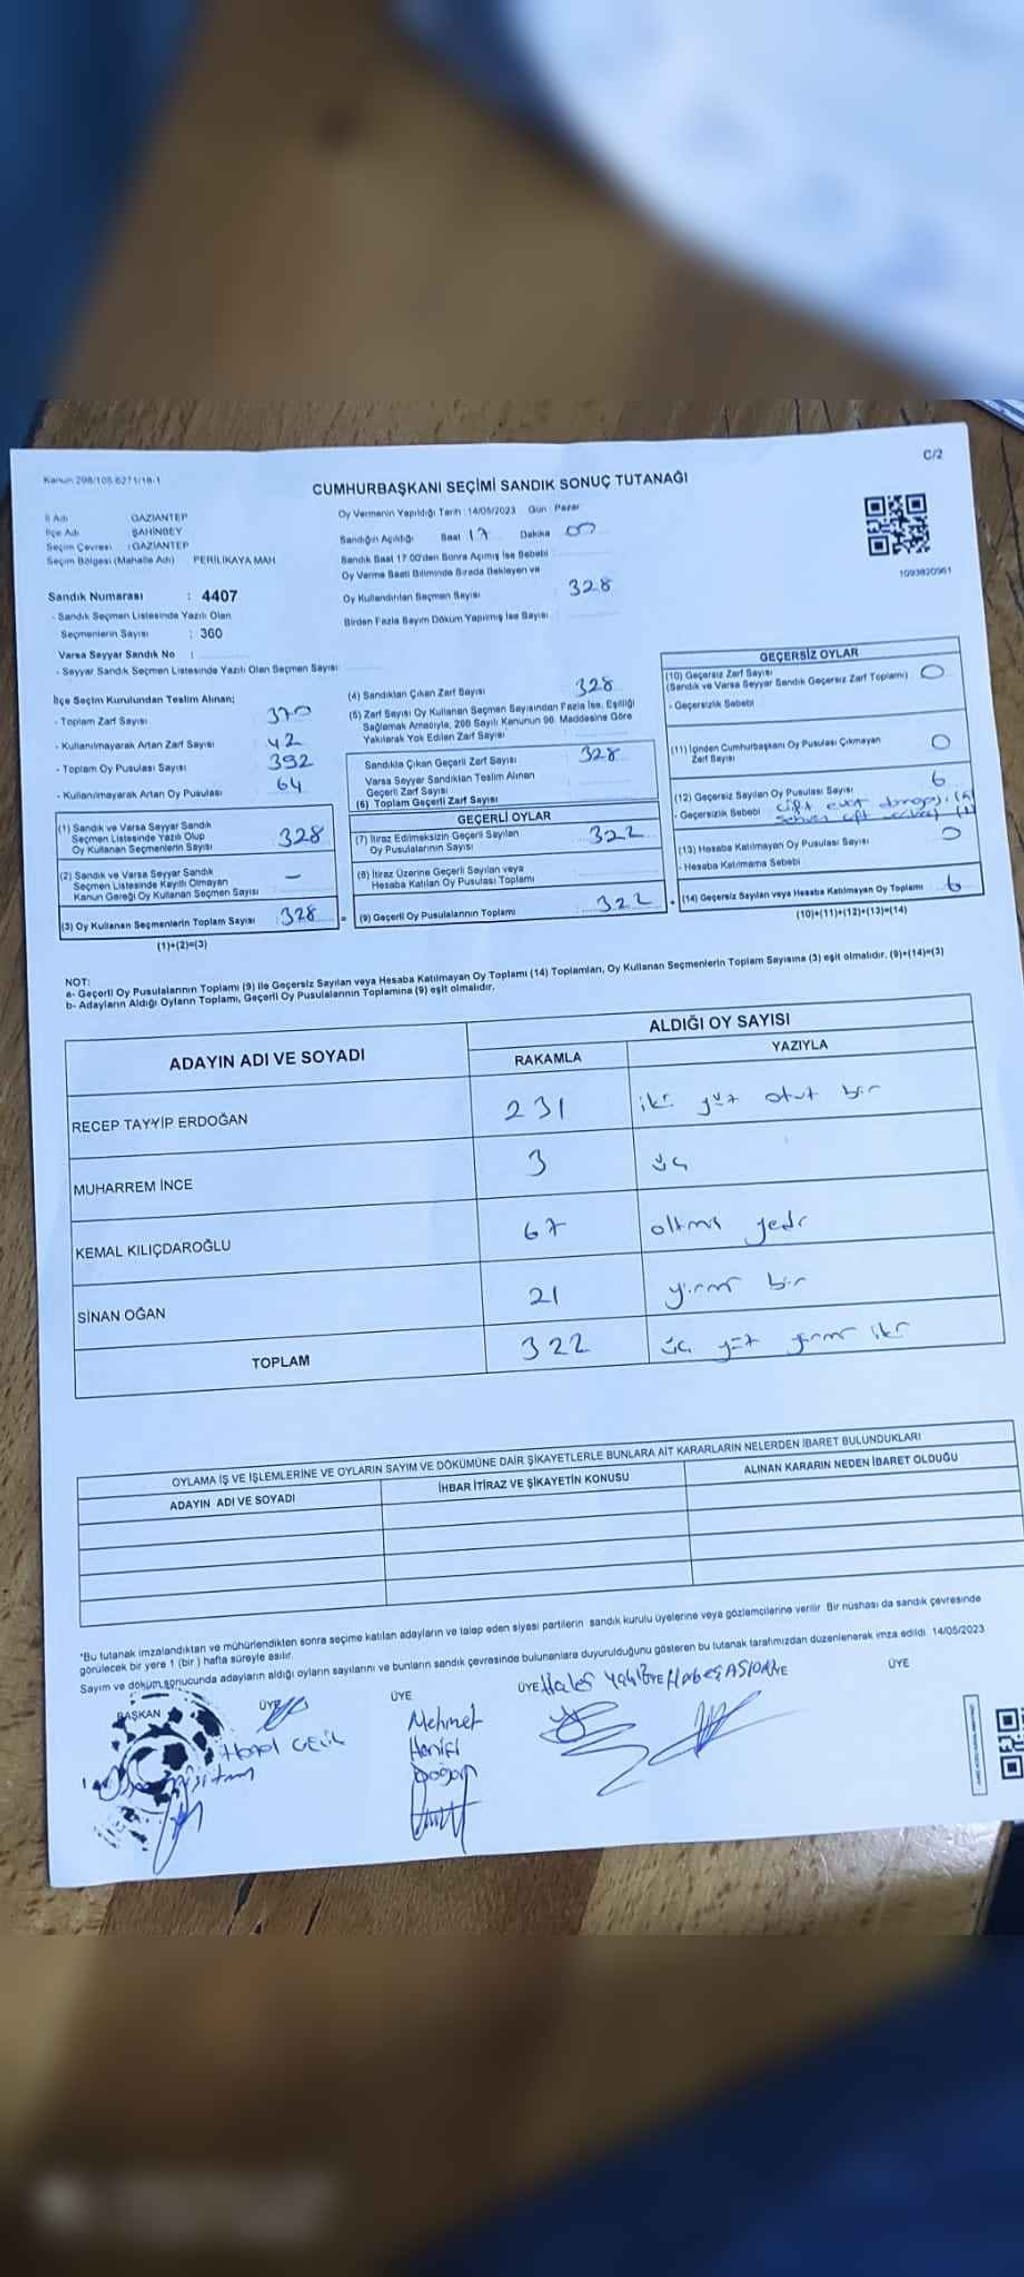 Kanun 298/105 6271/18-1
C/2
CUMHURBAŞKANI SEÇİMİ SANDIK SONUÇ TUTANAĞI
İl Adı : GAZİANTEP
İlçe Adı : ŞAHİNBEY
Seçim Çevresi : GAZİANTEP
Seçim Bölgesi (Mahalle Adı) PERİLİKAYA MAH
Sandık Numarası : 4407
- Sandık Seçmen Listesinde Yazılı Olan
Seçmenlerin Sayısı : 360
Varsa Seyyar Sandık No :
- Seyyar Sandık Seçmen Listesinde Yazılı Olan Seçmen Sayısı
Oy Vermenin Yapıldığı Tarih : 14/05/2023 Gün : Pazar
Sandığın Açıldığı Saat 17 Dakika 00
Sandık Saat 17:00'den Sonra Açılmış İse Sebebi
Oy Verme Saati Bitiminde Sırada Bekleyen ve
Oy Kullandırılan Seçmen Sayısı 328
Birden Fazla Sayım Döküm Yapılmış İse Sayısı
1093820961
İlçe Seçim Kurulundan Teslim Alınan;
- Toplam Zarf Sayısı 370
- Kullanılmayarak Artan Zarf Sayısı 42
- Toplam Oy Pusulası Sayısı 392
- Kullanılmayarak Artan Oy Pusulası 64
(1) Sandık ve Varsa Seyyar Sandık
Seçmen Listesinde Yazılı Olup
Oy Kullanan Seçmenlerin Sayısı 328
(2) Sandık ve Varsa Seyyar Sandık
Seçmen Listesinde Kayıtlı Olmayan
Kanun Gereği Oy Kullanan Seçmen Sayısı –
(3) Oy Kullanan Seçmenlerin Toplam Sayısı 328
(1)+(2)=(3)
(4) Sandıktan Çıkan Zarf Sayısı 328
(5) Zarf Sayısı Oy Kullanan Seçmen Sayısından Fazla İse, Eşitliği
Sağlamak Amacıyla, 298 Sayılı Kanunun 98. Maddesine Göre
Yakılarak Yok Edilen Zarf Sayısı
Sandıkta Çıkan Geçerli Zarf Sayısı 328
Varsa Seyyar Sandıktan Teslim Alınan
Geçerli Zarf Sayısı
(6) Toplam Geçerli Zarf Sayısı
GEÇERLİ OYLAR
(7) İtiraz Edilmeksizin Geçerli Sayılan
Oy Pusulalarının Sayısı 322
(8) İtiraz Üzerine Geçerli Sayılan veya
Hesaba Katılan Oy Pusulası Toplamı
= (9) Geçerli Oy Pusulalarının Toplamı 322
GEÇERSİZ OYLAR
(10) Geçersiz Zarf Sayısı
(Sandık ve Varsa Seyyar Sandık Geçersiz Zarf Toplamı) 0
- Geçersizlik Sebebi
(11) İçinden Cumhurbaşkanı Oy Pusulası Çıkmayan
Zarf Sayısı 0
(12) Geçersiz Sayılan Oy Pusulası Sayısı 6
- Geçersizlik Sebebi çift evet
(13) Hesaba Katılmayan Oy Pusulası Sayısı 0
- Hesaba Katılmama Sebebi
+ (14) Geçersiz Sayılan veya Hesaba Katılmayan Oy Toplamı 6
(10)+(11)+(12)+(13)=(14)
NOT:
a- Geçerli Oy Pusulalarının Toplamı (9) ile Geçersiz Sayılan veya Hesaba Katılmayan Oy Toplamı (14) Toplamları, Oy Kullanan Seçmenlerin Toplam Sayısına (3) eşit olmalıdır. (9)+(14)=(3)
b- Adayların Aldığı Oyların Toplamı, Geçerli Oy Pusulalarının Toplamına (9) eşit olmalıdır.
ADAYIN ADI VE SOYADI
ALDIĞI OY SAYISI
RAKAMLA YAZIYLA
RECEP TAYYİP ERDOĞAN 231 iki yüz otuz bir
MUHARREM İNCE 3 üç
KEMAL KILIÇDAROĞLU 67 altmış yedi
SİNAN OĞAN 21 yirmi bir
TOPLAM 322 üç yüz yirmi iki
OYLAMA İŞ VE İŞLEMLERİNE VE OYLARIN SAYIM VE DÖKÜMÜNE DAİR ŞİKAYETLERLE BUNLARA AİT KARARLARIN NELERDEN İBARET BULUNDUKLARI
ADAYIN ADI VE SOYADI İHBAR İTİRAZ VE ŞİKAYETİN KONUSU ALINAN KARARIN NEDEN İBARET OLDUĞU
*Bu tutanak imzalandıktan ve mühürlendikten sonra seçime katılan adayların ve talep eden siyasi partilerin sandık kurulu üyelerine veya gözlemcilerine verilir. Bir nüshası da sandık çevresinde
görülecek bir yere 1 (bir) hafta süreyle asılır.
Sayım ve döküm sonucunda adayların aldığı oyların sayılarını ve bunların sandık çevresinde bulunanlara duyurulduğunu gösteren bu tutanak tarafımızdan düzenlenerek imza edildi. 14/05/2023
BAŞKAN ÜYE ÜYE ÜYE ÜYE ÜYE
Mehmet
Hanifi
Doğan